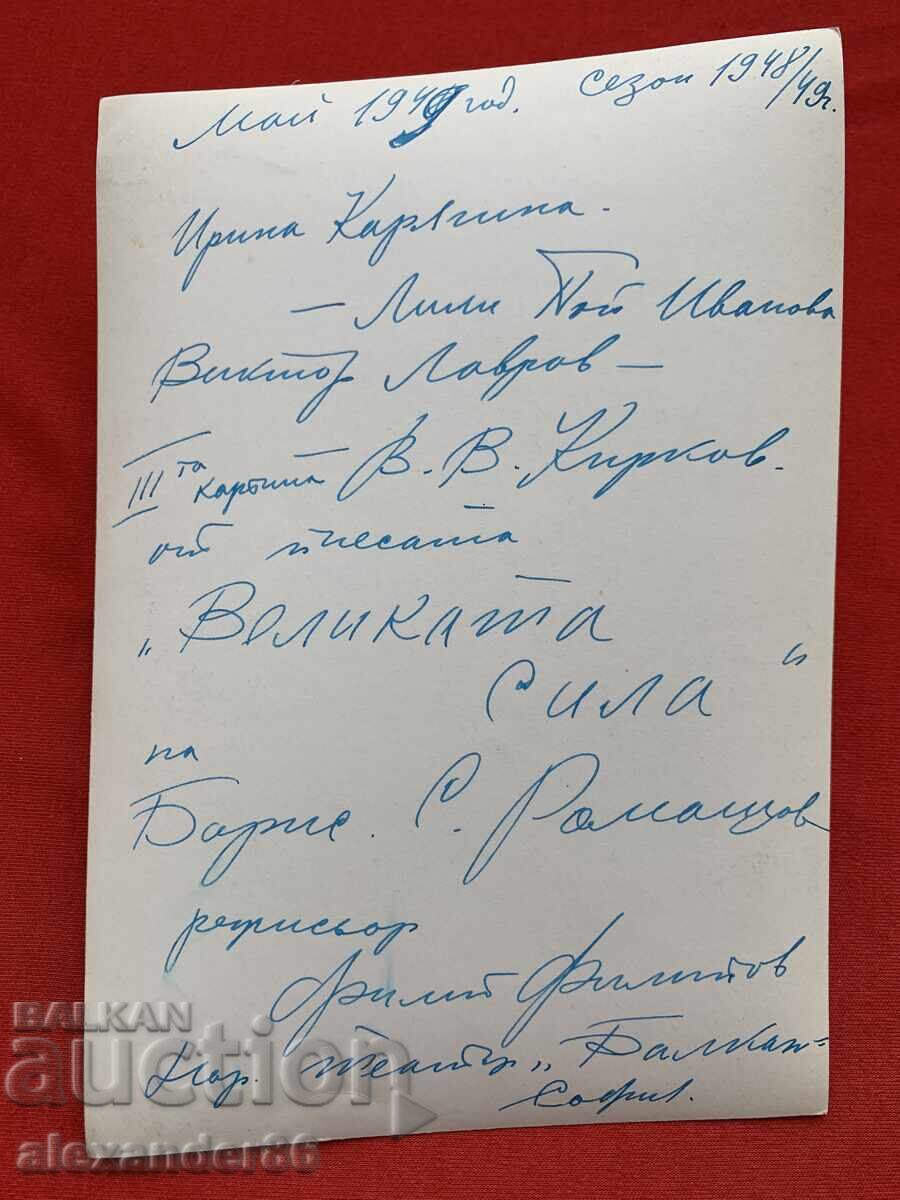 Май 1949 год. Сезон 1948/49г.
Ирина Карягина.
— Лили Поп Иванова
Виктор Лавров —
III та картина В. В. Кирков.
от пиесата
„Великата
сила"
на
Борис. С. Ромашов
режисьор
Филип Филипов
Нар. театър „Балкан"
София.
BALKAN
auction
alexander86